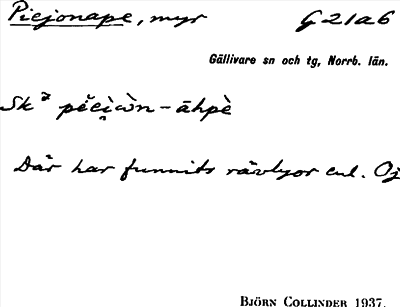 Piejonape, myr G21a6
Gällivare sn och tg, Norrb. län.
Sk
Där har funnits rävlyor enl. Oj
BJÖRN COLLINDER 1937.